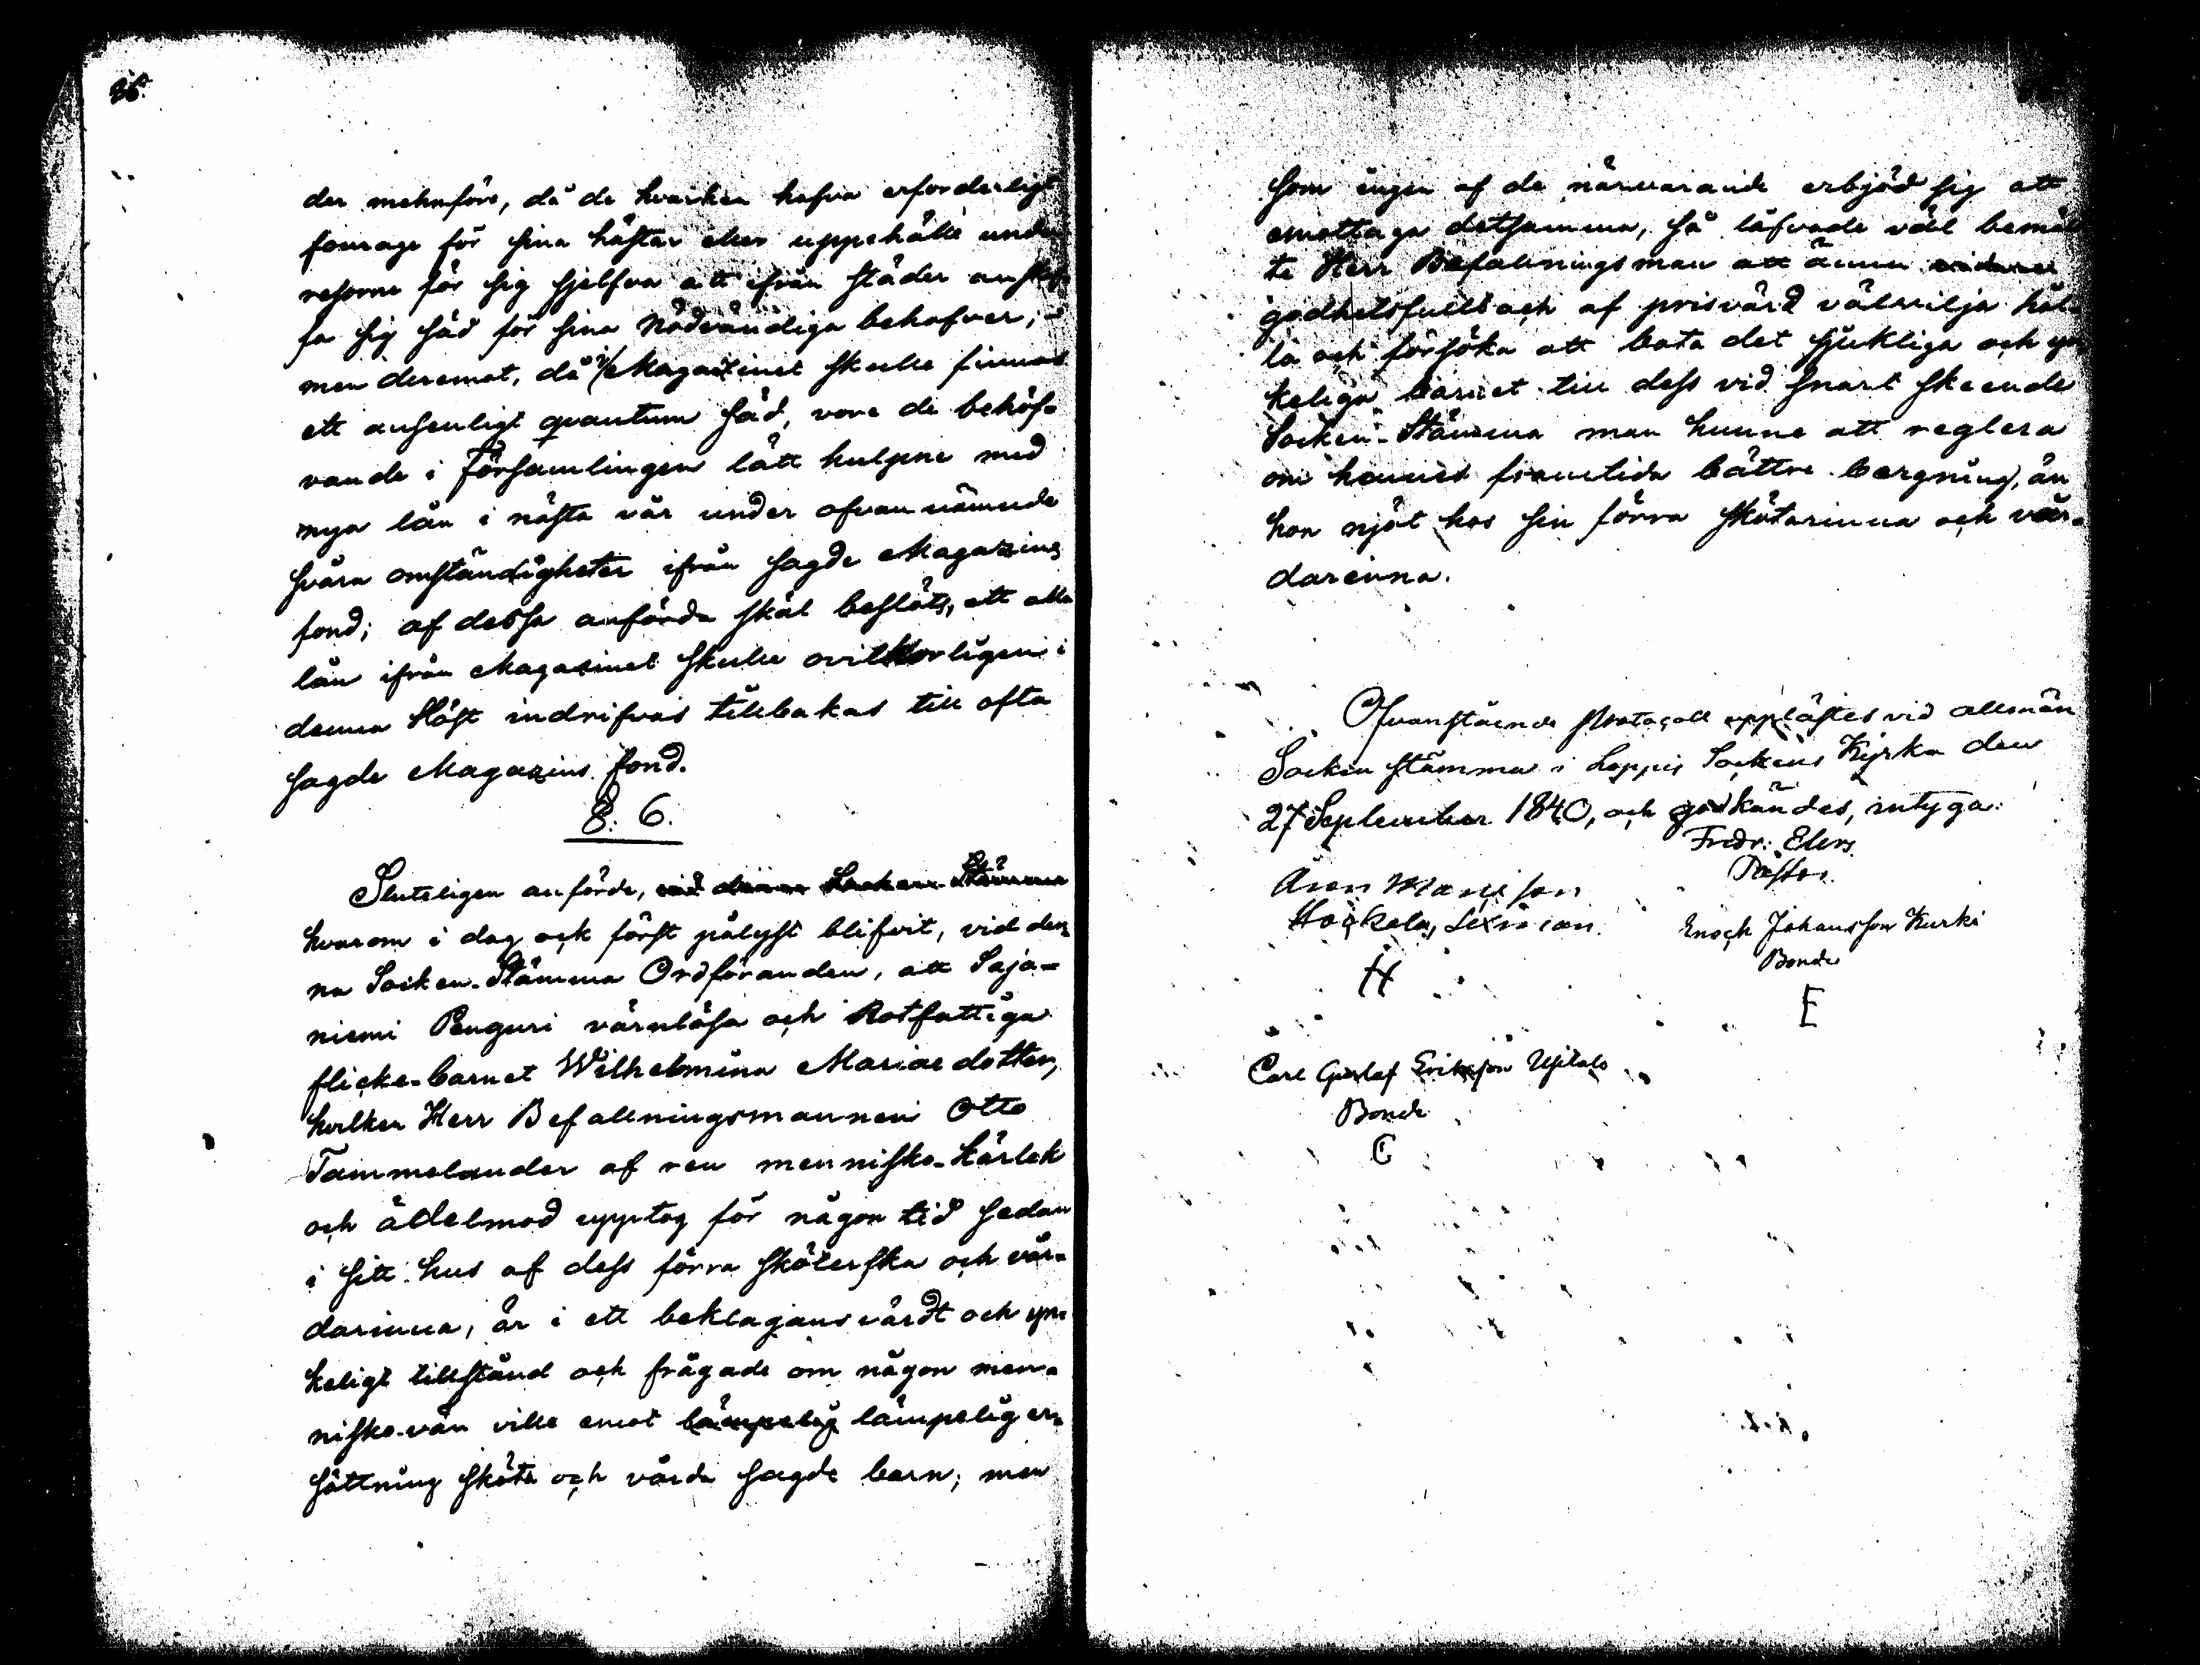 der mehnföre, då de hvarken hafva erforderligt
fourage för sina hästar eller uppehälle under
resorne för sig sjelfva att ifrån städer anskaf-
fa sig säd för sina nödvändiga behofver; -
men deremot, då i Magasinet skulle finnas
ett ansenligt qvantum säd, vore de behöf-
vande i Församlingen lätt hulpne med
nya lån i nästa vår under ofvannämnde
svåra omständigheter ifrån sagde Magazins
fond; af dessa anförda skäl beslöts, att alla
lån ifrån Magasinet skulle ovilkorligen i
denna Höst indrifvas tillbakas till ofta
sagde Magazins fond.
§. 6.
Sluteligen anförde, vid denna Socken-Stämma
hvarom i dag ock först pålyst blifvit, vid den-
na Socken-Stämma Ordföranden, att Saja-
niemi Penguri värnlösa och Rotfattiga
flicke-barnet Wilhelmina Mariae dotter,
hvilken Herr Befallningsmannen Otto
Tammelander af ren mennisko-kärlek
och ädelmod upptog för någon tid sedan
i sitt hus af dess förra sköterska och vår-
darinna, är i ett beklagansvärdt och ynk-
keligt tillstånd och frågade om någon men-
nisko-vän ville emot lämpelig lämpelig er-
sättning sköta och vårda sagde barn; men
som ingen af de närvarande erbjöd sig att
emottaga detsamma, så läfvade väl bemäl-
te Herr Befallningsman att ännu vidare
godhetsfullt och af prisvärd välvilja hål-
la och försöka att bota det sjukliga och yn-
keliga barnet till dess vid snart skeende
Socken-Stämma man hunne att reglera
om hannes framtida bättre bergning, än
hon njöt hos sin förra skötarinna och vår-
darinna.
Ofvanstående Protocoll upplästes vid allmän
Socken stämma i Loppis Sockens Kyrka den
27 September 1840, och godkändes, intyga:
Fredr: Elers
Pastor.
Aron Matsson
Hockola, Sexman
H
Enoch Johansson Kurki
Bonde
E
Carl Gustaf Eriksson Ujitalo
Bonde
C